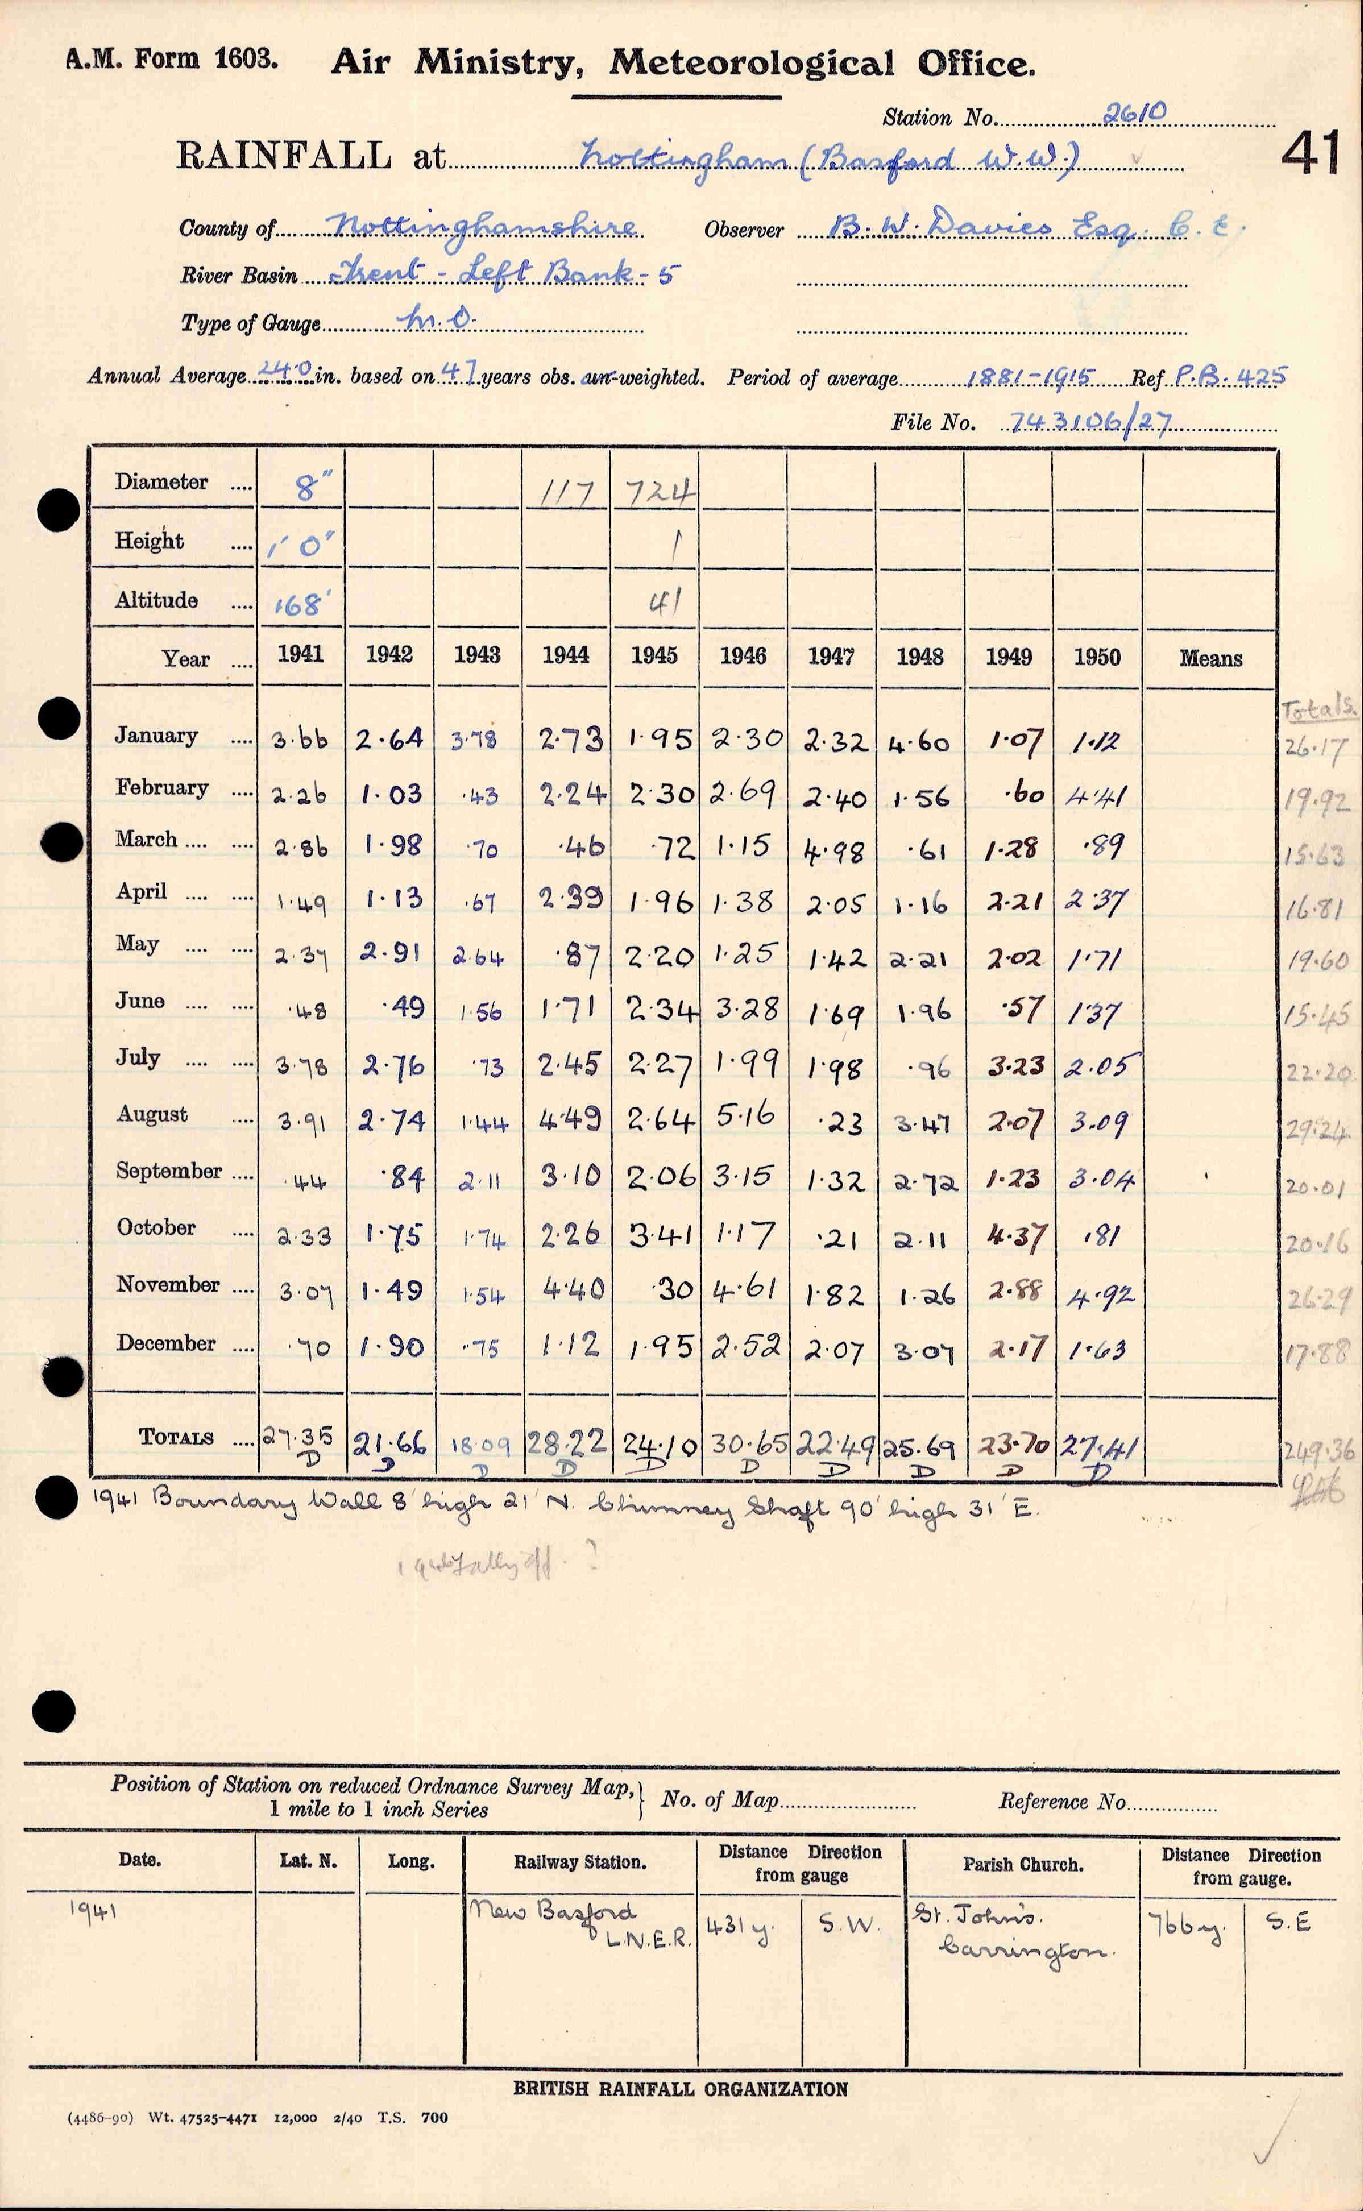 A.M. Form 1603. Air Ministry, Meteorological Office.
Station No. 2610
41
RAINFALL at Nottingham (Basford W.W.)
County of Nottinghamshire Observer B. W. Davies Esq. C. E.
River Basin Trent - Left Bank - 5
Type of Gauge M.O.
Annual Average 24.0 in. based on 47 years obs. un-weighted. Period of average 1881-1915 Ref P.B. 425
File No. 743106/27
Diameter .... 8" 117 724
Height .... 1' 0" 1
Altitude .... 168' 41
Year .... 1941 1942 1943 1944 1945 1946 1947 1948 1949 1950 Means
Totals.
January .... 3.66 2.64 3.78 2.73 1.95 2.30 2.32 4.60 1.07 1.12 26.17
February .... 2.26 1.03 .43 2.24 2.30 2.69 2.40 1.56 .60 4.41 19.92
March .... .... 2.86 1.98 .70 .46 .72 1.15 4.98 .61 1.28 .89 15.63
April .... .... 1.49 1.13 .67 2.39 1.96 1.38 2.05 1.16 2.21 2.37 16.81
May .... .... 2.37 2.91 2.64 .87 2.20 1.25 1.42 2.21 2.02 1.71 19.60
June .... .... .48 .49 1.56 1.71 2.34 3.28 1.69 1.96 .57 1.37 15.45
July .... .... 3.78 2.76 .73 2.45 2.27 1.99 1.98 .96 3.23 2.05 22.20
August .... 3.91 2.74 1.44 4.49 2.64 5.16 .23 3.47 2.07 3.09 29.24
September .... .44 .84 2.11 3.10 2.06 3.15 1.32 2.72 1.23 3.04 20.01
October .... 2.33 1.75 1.74 2.26 3.41 1.17 .21 2.11 4.37 .81 20.16
November .... 3.07 1.49 1.54 4.40 .30 4.61 1.82 1.26 2.88 4.92 26.29
December .... .70 1.90 .75 1.12 1.95 2.52 2.07 3.07 2.17 1.63 17.88
TOTALS .... 27.35 21.66 18.09 28.22 24.10 30.65 22.49 25.69 23.70 27.41 249.36
D D D D D D D D D D
1941 Boundary Wall 8' high 21' N. Chimney Shaft 90' high 31' E.
Position of Station on reduced Ordnance Survey Map, 1 mile to 1 inch Series } No. of Map Reference No.
Date. Lat. N. Long. Railway Station. Distance Direction from gauge Parish Church. Distance Direction from gauge.
1941 New Basford L.N.E.R. 431 y. S.W. St. John's. Carrington. 766 y. S.E
BRITISH RAINFALL ORGANIZATION
(4486-90) Wt. 47525-4471 12,000 2/40 T.S. 700